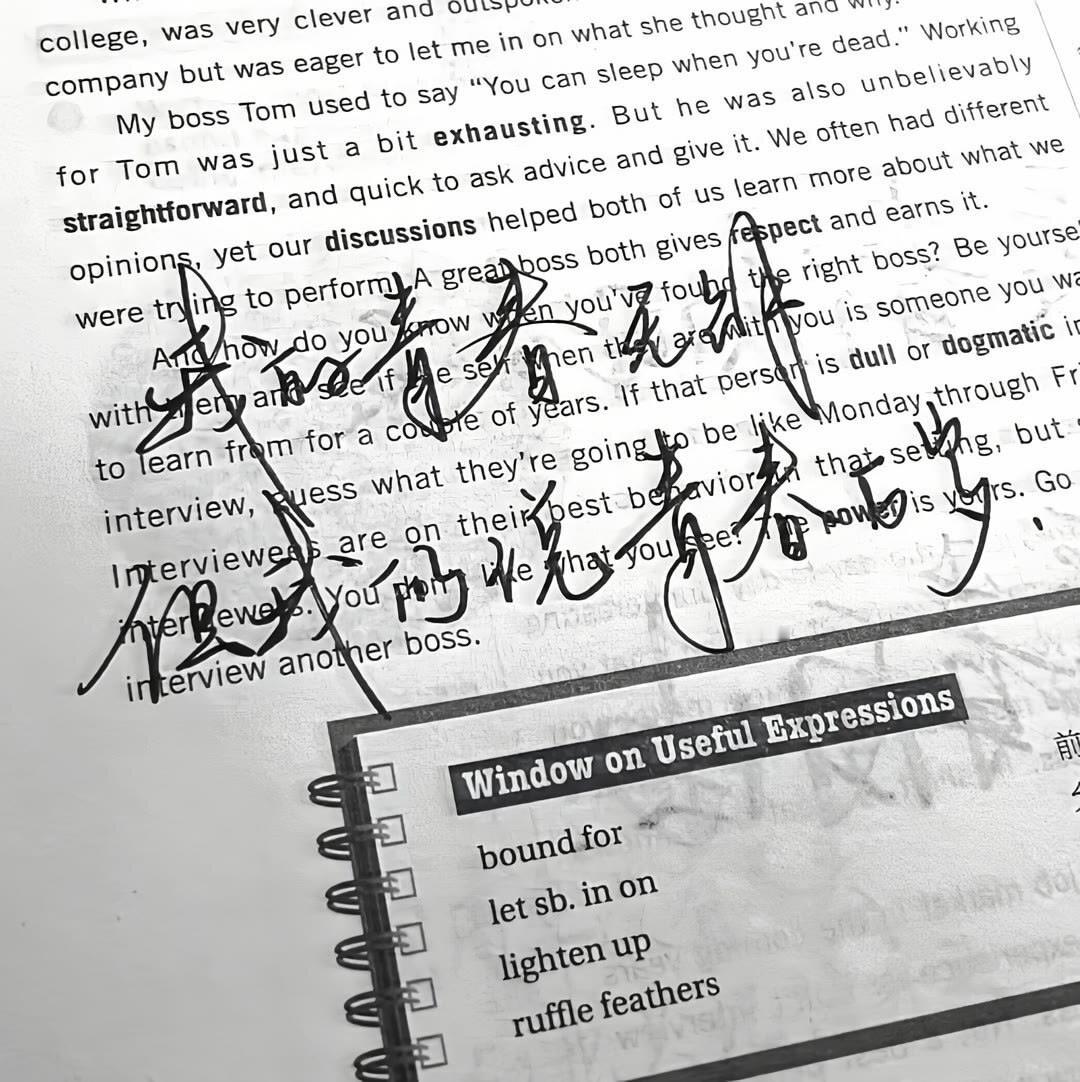 college, was very clever and outspoken
company but was eager to let me in on what she thought and why.
My boss Tom used to say “You can sleep when you're dead.” Working
for Tom was just a bit exhausting. But he was also unbelievably
straightforward, and quick to ask advice and give it. We often had different
opinions, yet our discussions helped both of us learn more about what we
were trying to perform. A great boss both gives respect and earns it.
And how do you know when you've found the right boss? Be yourself
with them and see if the self when they are with you is someone you
to learn from for a couple of years. If that person is dull or dogmatic in
interview, guess what they're going to be like Monday through
Interviewees are on their best behavior in that setting, but
interviewers. You don't like what you see? The power is yours. Go
interview another boss.
我和青春无
但我的说青春万岁.
Window on Useful Expressions
bound for
let sb. in on
lighten up
ruffle feathers
前